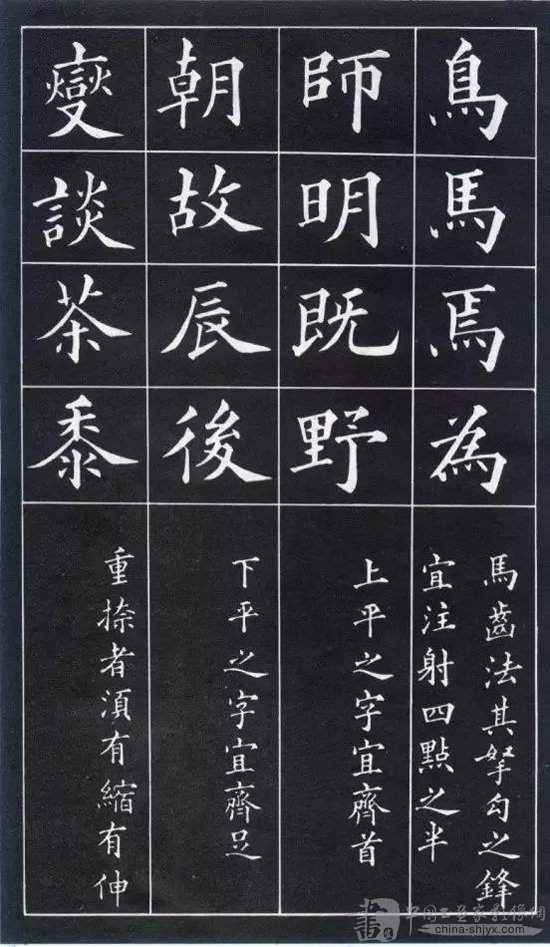 鳥馬焉為
馬齒法其努勾之鋒
宜注射四點之半
師明既野
上平之字宜齊首
朝故辰後
下平之字宜齊足
變談茶黍
重捺者須有縮有伸
china-shjyx.com